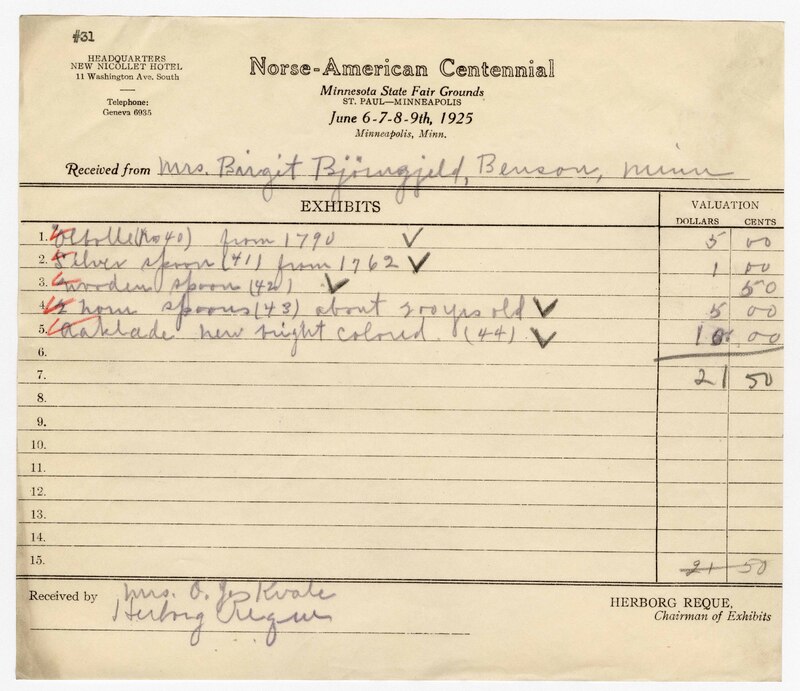 #31
HEADQUARTERS
NEW NICOLLET HOTEL
11 Washington Ave. South
Telephone:
Geneva 6935
Norse-American Centennial
Minnesota State Fair Grounds
ST. PAUL—MINNEAPOLIS
June 6-7-8-9th, 1925
Minneapolis, Minn.
Received from Mrs. Birgit Björngjeld, Benson, Minn
EXHIBITS VALUATION
DOLLARS CENTS
1. Ølbolle (No 40) from 1790 ✓ 5 00
2. Silver spoon (41) from 1762 ✓ 1 00
3. wooden spoon (42) ✓ 50
4. 2 horn spoons (43) about 200 yrs old ✓ 5 00
5. Aaklade new bright colored. (44) ✓ 10 00
6.
7. 21 50
8.
9.
10.
11.
12.
13.
14.
15. 21 50
Received by Mrs. O. Kvale
Herborg Reque
HERBORG REQUE,
Chairman of Exhibits